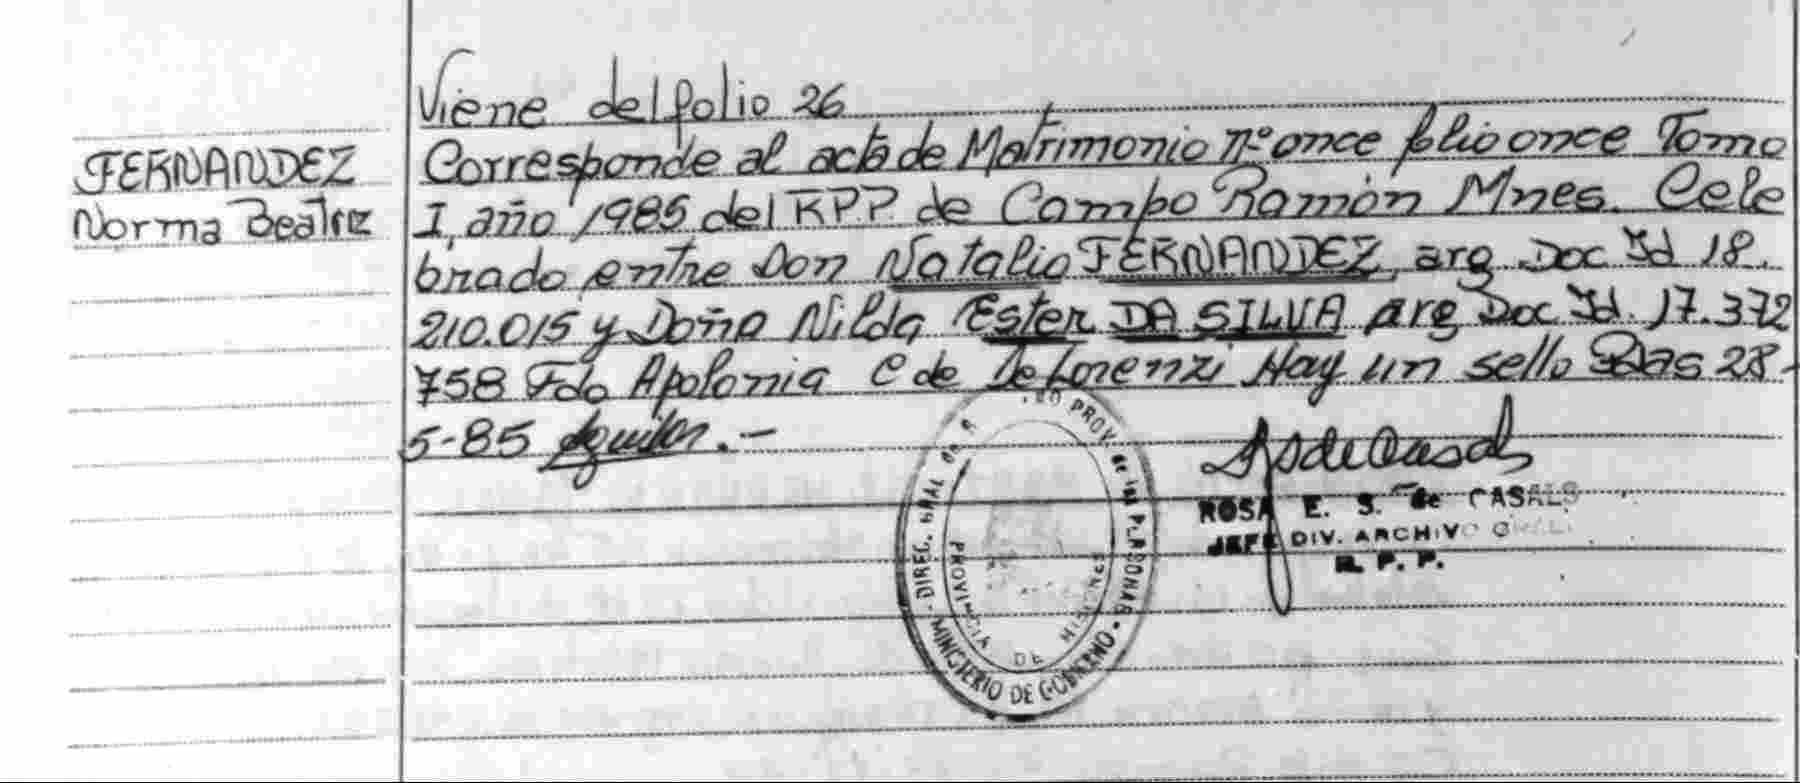 FERNANDEZ
Norma Beatriz
Viene del folio 26
Corresponde al acta de Matrimonio nº once folio once Tomo
I, año 1985 del R.P.P. de Campo Ramón Mnes. Cele
brado entre Don Natalio FERNANDEZ, arg Doc Id 18.
210.015 y Doña Nilda Ester DA SILVA arg Doc Id. 17.372
758 Fdo Apolonia C de De Lorenzi Hay un sello Pdas 28-
5-85 Aguilar.-
ROSA E. S. de CASALS
JEFE DIV. ARCHIVO GRAL.
R. P. P.
DIREC. GRAL de PROV. de las PERSONAS
MINISTERIO DE GOBIERNO
PROVINCIA DE MISIONES